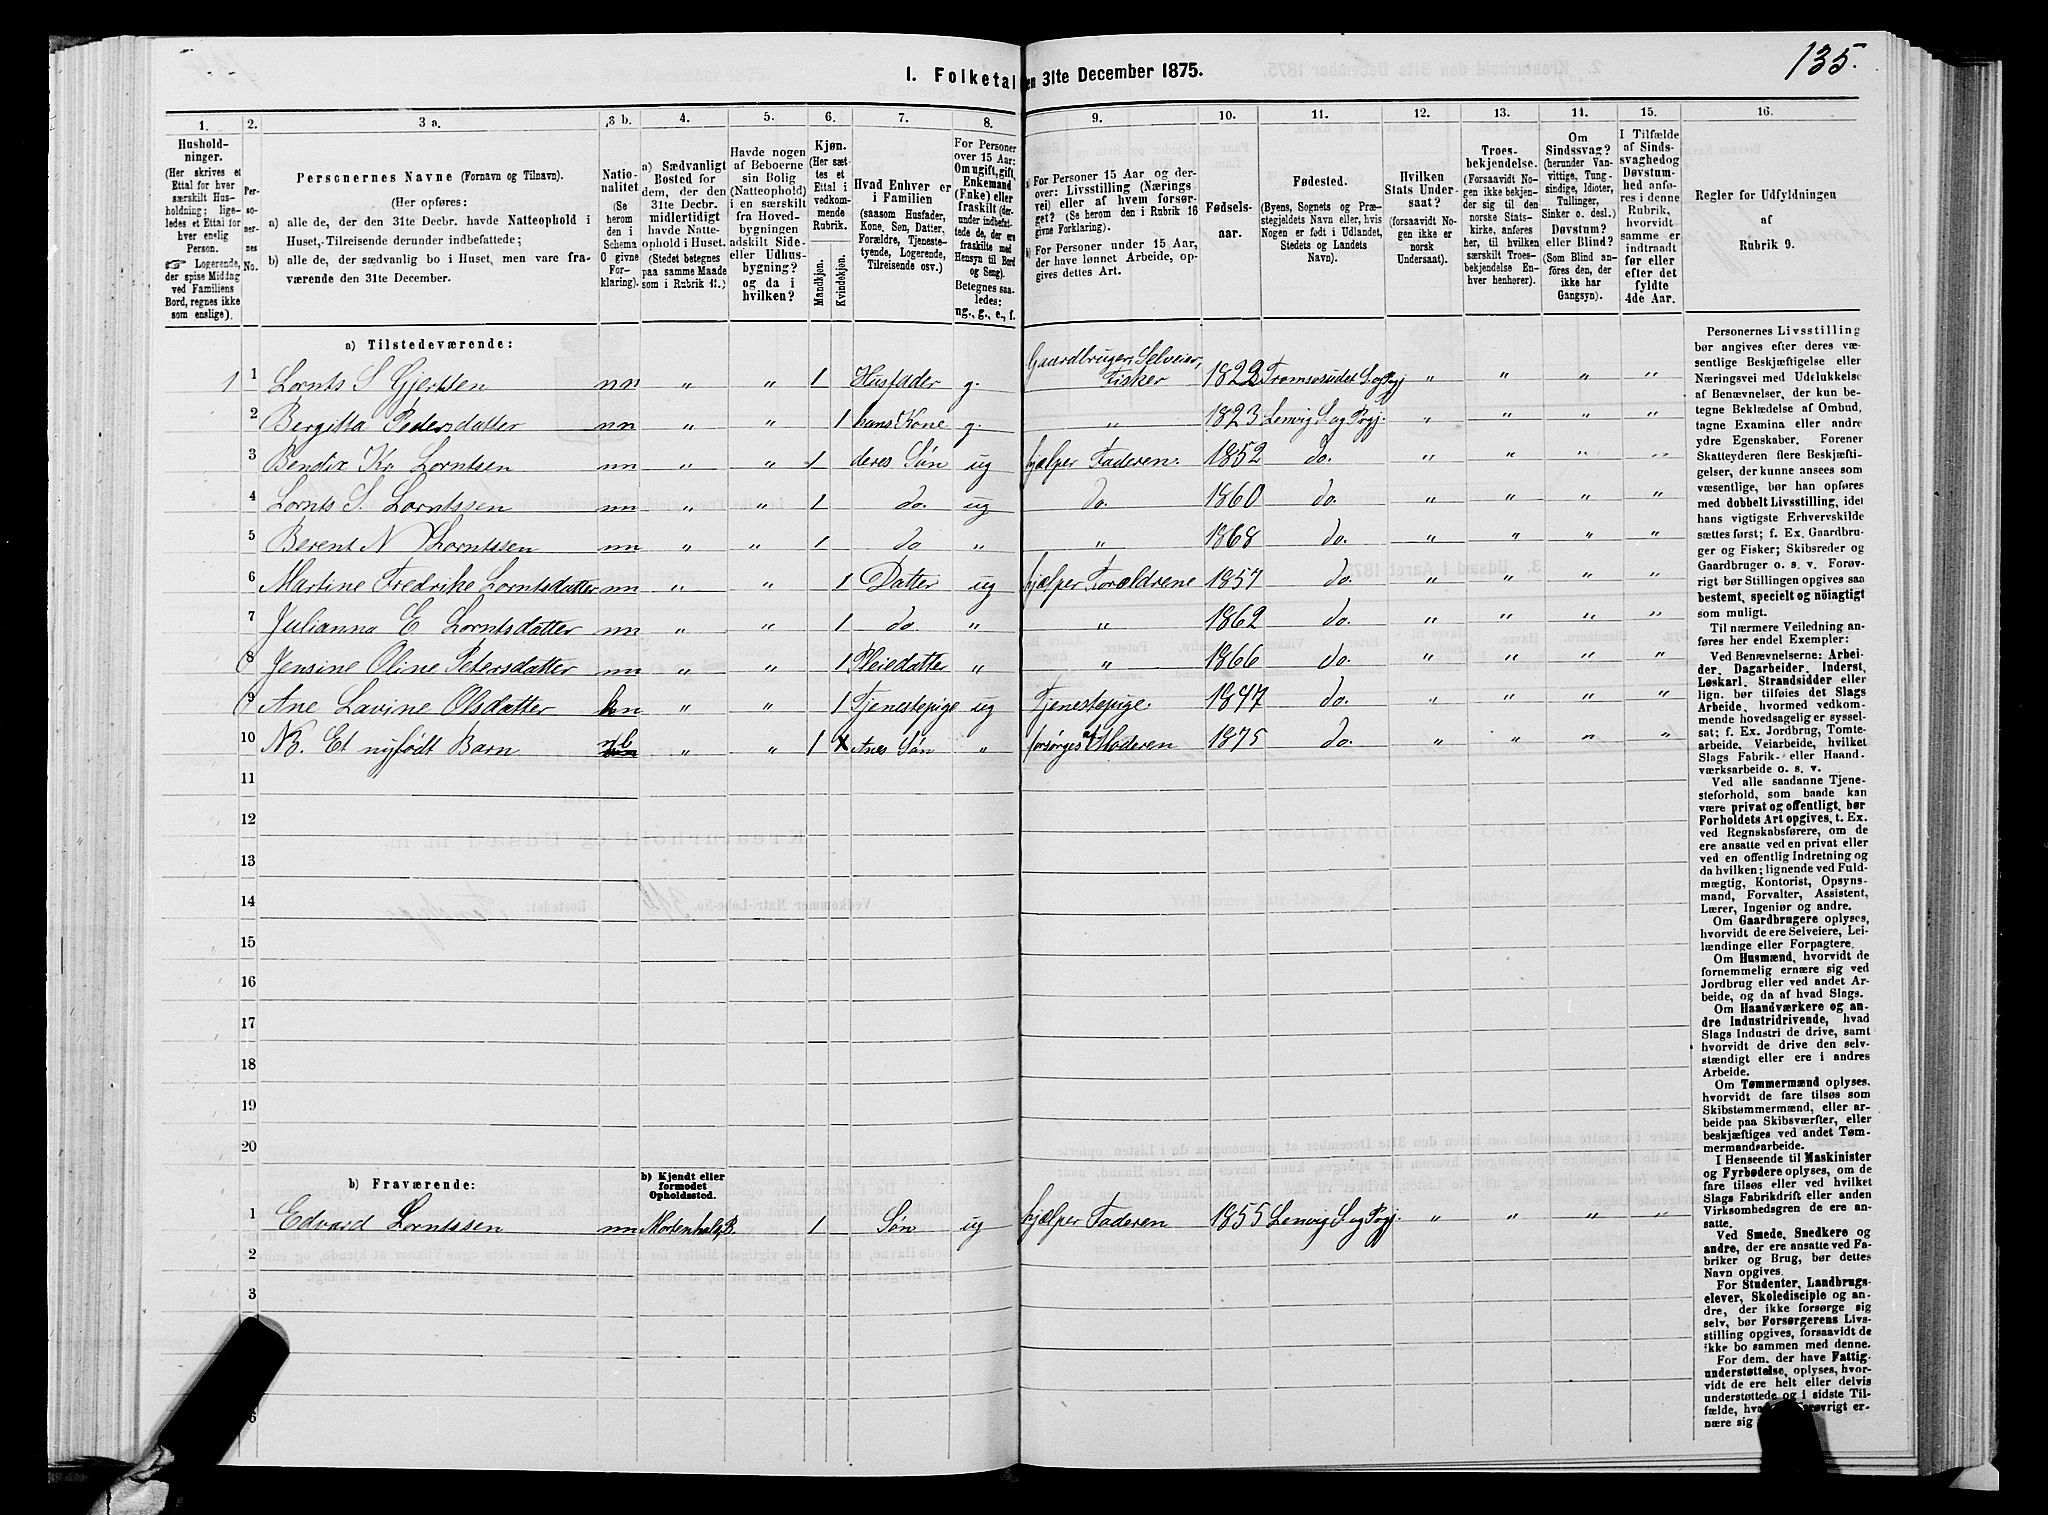 135.
1. Folketal den 31te December 1875.
1. 2. 3 a. 3 b. 4. 5. 6. 7. 8. 9. 10. 11. 12. 13. 14. 15. 16.
Husholdninger.
(Her skrives et
Ettal for hver
særskilt Husholdning;
ligeledes et Ettal for
hver enslig
Person.
☞ Logerende,
der spise Middag
ved Familiens
Bord, regnes ikke
som enslige).
Personernes No.
Personernes Navne (Fornavn og Tilnavn).
(Her opføres:
a) alle de, der den 31te Decbr. havde Natteophold i
Huset, Tilreisende derunder indbefattede;
b) alle de, der sædvanlig bo i Huset, men vare fraværende
den 31te December.
Nationalitet
(Se
herom
den i
Schema
O givne
Forklaring).
a) Sædvanligt
Bosted for
dem, der den
31te Decbr.
midlertidigt
havde Natteophold
i Huset.
(Stedet betegnes
paa samme Maade
som i Rubrik 11.)
Havde nogen
af Beboerne
sin Bolig
(Natteophold)
i en særskilt
fra Hovedbygningen
adskilt Side-
eller Udhusbygning?
og da i
hvilken?
Kjøn.
(Her sættes
et
Ettal i
vedkommende
Rubrik.
Mandkjøn.
Kvindekjøn.
Hvad Enhver er
i Familien
(saasom Husfader,
Kone, Søn, Datter,
Forældre, Tjenestetyende,
Logerende,
Tilreisende osv.)
For Personer
over 15 Aar:
Om ugift, gift,
Enkemand
(Enke) eller
fraskilt (derunder
indbefattede
de, der ere
fraskilte med
Hensyn til Bord
og Seng).
Betegnes saaledes:
ng., g., e., f.
a) For Personer 15 Aar og derover:
Livsstilling (Næringsvei)
eller af hvem forsørget?
(Se herom den i Rubrik 16
givne Forklaring).
b) For Personer under 15 Aar,
der have lønnet Arbeide, opgives
dettes Art.
Fødselsaar.
Fødested.
(Byens, Sognets og Præstegjeldets
Navn eller, hvis
Nogen er født i Udlandet,
Stedets og Landets
Navn).
Hvilken
Stats Undersaat?
(forsaavidt Nogen
ikke er
norsk
Undersaat).
Troesbekjendelse.
(Forsaavidt Nogen
ikke bekjender
sig til den
norske Statskirke,
anføres
her, til hvilken
særskilt Troesbekjendelse
Enhver
henhører).
Om
Sindssvag?
(herunder Vanvittige,
Tungsindige,
Idioter,
Tullinger,
Sinker o. desl.)
Døvstum?
eller Blind?
(Som Blind anføres
den, der
ikke har
Gangsyn).
I Tilfælde
af Sindssvaghed
og
Døvstumhed
anføres
i denne
Rubrik,
hvorvidt
samme er
indtraadt
før eller
efter det
fyldte
4de Aar.
Regler for Udfyldningen
af
Rubrik 9.
a) Tilstedeværende:
1 1 Lornts S Gjertsen nn „ „ 1 Husfader g. Gaardbruger, Selveier, Fisker 1822 Tromsøsudet S. og Prgj „ „ „ „
2 Bergitta Pedersdatter nn „ „ 1 hans Kone g. „ 1823 Lenvig S. og Prgj. „ „ „ „
3 Bendix Kr. Lorntsen nn „ „ 1 deres Søn ug hjælper Faderen. 1852 do. „ „ „ „
4 Lornts S. Lorntssen nn „ „ 1 do. ug do. 1860 do. „ „ „ „
5 Berent N Lorntssen nn „ „ 1 do „ „ 1868 do. „ „ „ „
6 Martine Fredrike Lorntsdatter nn „ „ 1 Datter ug hjælper Forældrene 1857 do. „ „ „ „
7 Julianna E Lorntsdatter nn „ „ 1 do. „ „ 1862 do. „ „ „ „
8 Jensine Oline Petersdatter nn „ „ 1 Pleiedatter „ „ 1866 do. „ „ „ „
9 Ane Lavine Olsdatter nn „ „ 1 Tjenestepige ug Tjenestepige. 1847 do. „ „ „ „
10 NB. Et nyfødt Barn nb „ „ 1 Anes Søn „ forsørges af Moderen 1875 do. „ „ „ „
11
12
13
14
15
16
17
18
19
20
b) Fraværende:
b) Kjendt eller
formodet
Opholdssted.
1 Edvard Lorntssen nn Mortenhals, B. 1 Søn ug hjælper Faderen 1855 Lenvig S. og Prgj. „ „ „ „
2
3
6
Personernes Livsstilling
bør angives efter deres væsentlige
Beskjæftigelse eller
Næringsvei med Udelukkelse
af Benævnelser, der kun betegne
Beklædelse af Ombud,
tagne Examina eller andre
ydre Egenskaber. Forener
Skatteyderen flere Beskjæftigelser,
der kunne ansees som
væsentlige, bør han opføres
med dobbelt Livsstilling, idet
hans vigtigste Erhvervskilde
sættes først; f. Ex. Gaardbruger
og Fisker; Skibsreder og
Gaardbruger o. s. v. Forøvrigt
bør Stillingen opgives saa
bestemt, specielt og nöiagtigt
som muligt.
Til nærmere Veiledning anføres
her endel Exempler:
Ved Benævnelserne: Arbeider,
Dagarbeider, Inderst,
Løskarl, Strandsidder eller
lign. bør tilføies det Slags
Arbeide, hvormed vedkommende
hovedsagelig er sysselsat;
f. Ex. Jordbrug, Tomtearbeide,
Veiarbeide, hvilket
Slags Fabrik- eller Haandværksarbeide
o. s. v.
Ved alle saadanne Tjenesteforhold,
som baade kan
være privat og offentligt, bør
Forholdets Art opgives, t. Ex.
ved Regnskabsførere, om de
ere ansatte ved en privat eller
ved en offentlig Indretning og
da hvilken; lignende ved Fuldmægtig,
Kontorist, Opsynsmand,
Forvalter, Assistent,
Lærer, Ingeniør og andre.
Om Gaardbrugere oplyses,
hvorvidt de ere Selveiere, Leilændinge
eller Forpagtere.
Om Husmænd, hvorvidt de
fornemmelig ernære sig ved
Jordbrug eller ved andet Arbeide,
og da af hvad Slags.
Om Haandværkere og andre
Industridrivende, hvad
Slags Industri de drive, samt
hvorvidt de drive den selvstændigt
eller ere i andres
Arbeide.
Om Tømmermænd oplyses,
hvorvidt de fare tilsøs som
Skibstømmermænd, eller arbeide
paa Skibsværfter, eller
beskjæftiges ved andet Tømmermandsarbeide.
I Henseende til Maskinister
og Fyrbødere oplyses, om de
fare tilsøs eller ved hvilket
Slags Fabrikdrift eller anden
Virksomhedsgren de ere ansatte.
Ved Smede, Snedkere og
andre, der ere ansatte ved Fabriker
og Brug, bør dettes
Navn opgives.
For Studenter, Landbrugselever,
Skoledisciple og andre,
der ikke forsørge sig
selv, bør Forsørgerens Livsstilling
opgives, forsaavidt de
ikke bo sammen med denne.
For dem, der have Fattigunderstøttelse,
oplyses, hvorvidt
de ere helt eller delvis
understøttede og i sidste Tilfælde,
hvad de forøvrigt ernære
sig